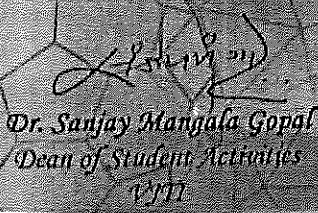 Dr. Sanjay Mangala Gopal
Dean of Student Activities
VJTI